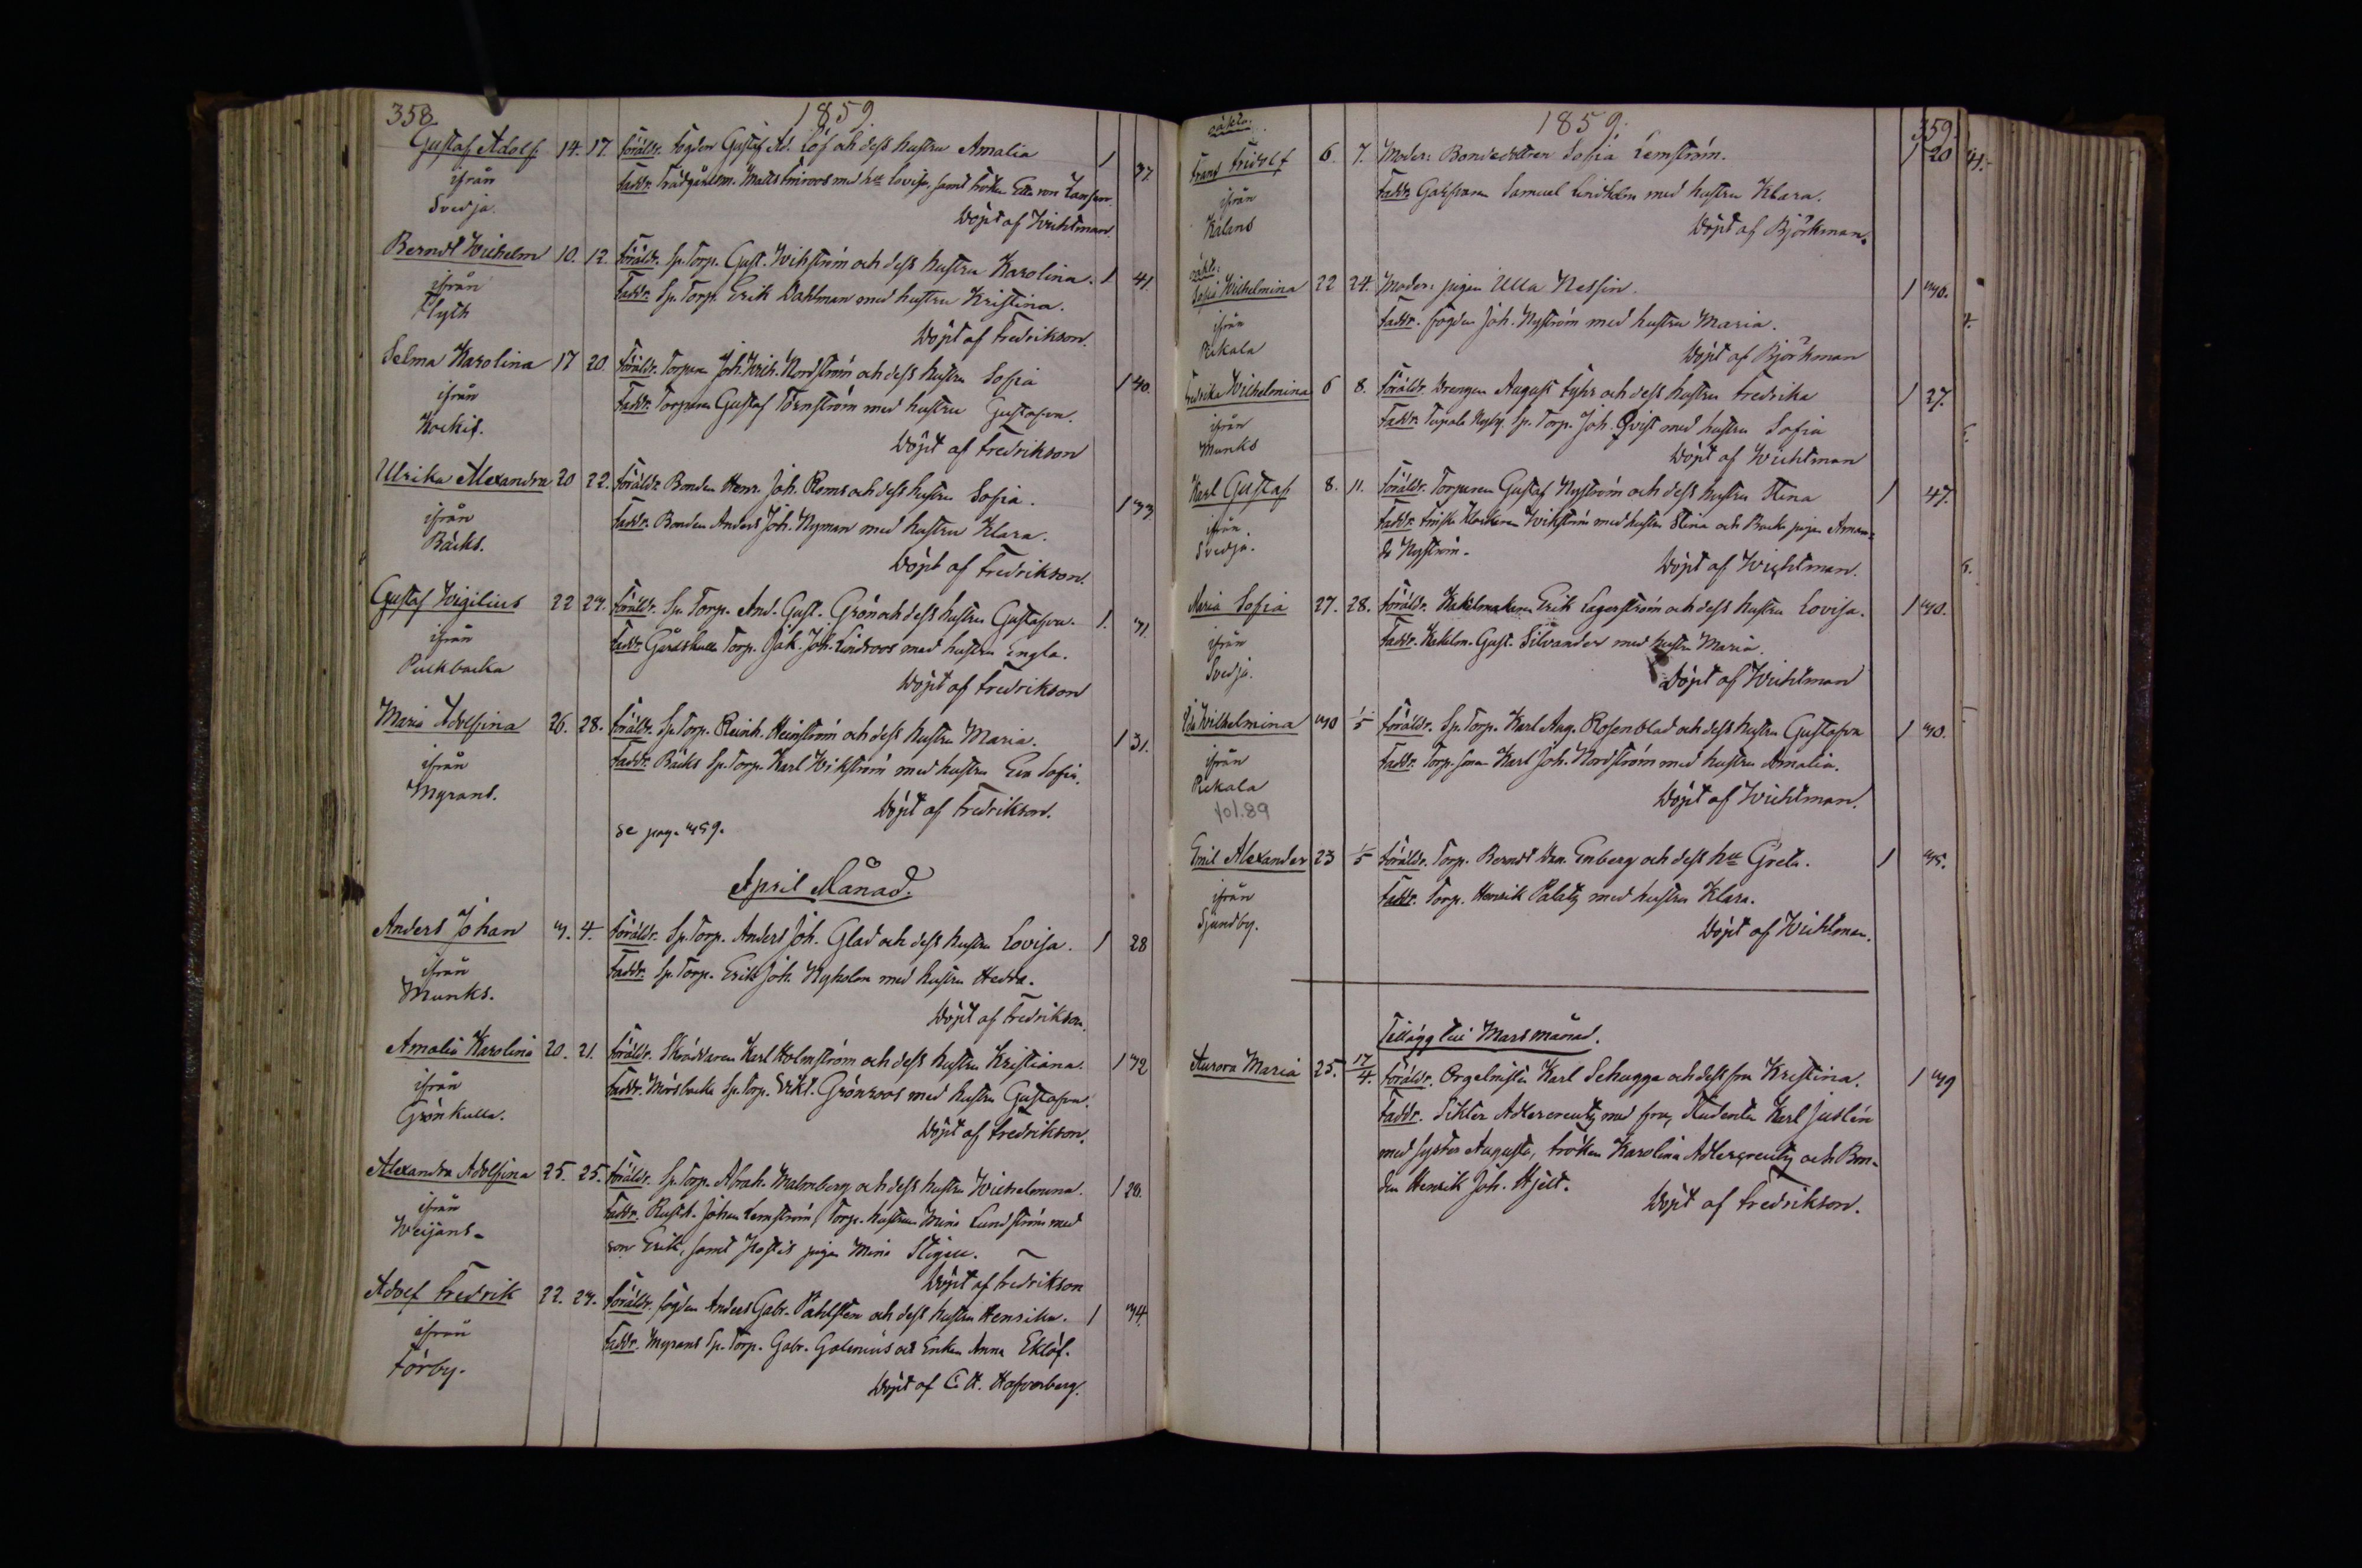 358.
1859.
Gustaf Adolf 14. 17. Föräldr. Fogden Gustaf Ad. Löf och dess hustru Amalia 1 37.
ifrån Faddr. Trädgårdsm. Matts Finroos med hu Lovisa, samt fröken Etta von
Svedja. Döpt af Wichtman.
Berndt Wilhelm 10. 12. Föräldr. Sp. Torp. Gust. Wikström och dess hustru Karolina. 1 41.
ifrån Faddr. Sp. Torp. Erik Dahlman med hustru Kristina.
Flyth Döpt af Fredrikson.
Selma Karolina 17 20. Föräldr. Torparen Joh. Wilh. Nordström och dess hustru Sofia 1 40.
ifrån Faddr. Torparen Gustaf Törnström med hustru Gustafva.
Kockis. Döpt af Fredrikson
Ulrika Alexandra 20 22. Föräldr. Bonden Henr. Joh. Roms och dess hustru Sofia. 1 33
ifrån Faddr. Bonden Anders Joh. Nyman med hustru Klara.
Bäcks. Döpt af Fredrikson.
Gustaf Wigilius 22 23. Föräldr. Sp. Torp. And. Gust. Grön och dess hustru Gustafva. 1. 31.
ifrån Faddr. Gårdskulla Torp. Jak. Joh. Lindroos med hustru Engla.
Puckbacka Döpt af Fredrikson
Maria Adolfina 26. 28. Föräldr. Sp. Torp. Reinh. Heinström och dess hustru Maria. 1 31.
ifrån Faddr. Bäcks Sp. Torp. Karl Wikström med hustru Eva Sofia.
Myrans. Döpt af Fredrikson.
se pag. 359.
April Månad.
Anders Johan 3. 4. Föräldr. Sp. Torp. Anders Joh. Glad och dess hustru Lovisa. 1 28
ifrån Faddr. Sp. Torp. Erik Joh. Nyholm med hustru Hedda.
Munks. Döpt af Fredrikson.
Amalia Karolina 20. 21. Föräldr. Skräddaren Karl Holmström och dess hustru Kristiana. 1 32
ifrån Faddr. Mörsbacka Sp. Torp. Vikt. Grönroos med hustru Gustafva.
Grönkulla. Döpt af Fredrikson.
Alexandra Adolfina 25. 25. Föräldr. Sp. Torp. Abrah. Malmberg och dess hustru Wilhelmina. 1 28.
ifrån Faddr. Rusth. Johan Lemström, Torp. hustrun Mina Lundström med
Weijans. son Erik, samt Kostis pigan Mina Stigell.
Döpt af Fredrikson
Adolf Fredrik 22. 23. Föräldr. Fogden Anders Gabr. Pahlsten och dess hustru Henrika. 1 34.
ifrån Faddr. Myrans Sp. Torp. Gabr. Galenius och Enkan Anna Eklöf.
Förby. Döpt af C. H. Hafverberg.
1859.
359.
oäkta.
Frans Fridolf 6. 7. Moder: Bondedottren Sofia Lemström. 1 20
ifrån Faddr. Gatfvaren Samuel Lindholm med hustru Klara.
Kalans Döpt af Björkman.
oäkta.
Sofia Wilhelmina 22 24. Moder: pigan Ulla Nessin. 1 30.
ifrån Faddr. Fogden Joh. Nyström med hustru Maria.
Pikala Döpt af Björkman
Fredrika Wilhelmina 6 8. Föräldr. Drengen August Fyhr och dess hustru Fredrika 1 27.
ifrån Faddr. Nyby Sp. Torp. Joh. Qvist med hustru Sofia
Munks Döpt af Wichtman
Karl Gustaf 8. 11. Föräldr. Torparen Gustaf Nyström och dess hustru Stina 1 47.
ifrån Faddr. Finska Klockaren Wikström med hustru Stina och Backa pigan Aman-
Svedja. da Nyström. Döpt af Wichtman.
Maria Sofia 27. 28. Föräldr. Kakelmakaren Erik Lagerström och dess hustru Lovisa. 1 30.
ifrån Faddr. Kakelm. Gust. Silvander med hustru Maria.
Svedja. Döpt af Wichtman
Ida Wilhelmina 30 1/5 Föräldr. Sp. Torp. Karl Aug. Rosenblad och dess hustru Gustafva 1 30.
ifrån Faddr. Torp. sonen Karl Joh. Nordström med hustru Amalia.
Pikala Döpt af Wichtman.
fol. 89
Emil Alexander 23 1/5 Föräldr. Torp. Berndt Enberg och dess hu Greta. 1 35.
ifrån Faddr. Torp. Henrik Palatz med hustru Klara.
Sjundby. Döpt af Wichtman.
Tillägg till Mars månad.
Aurora Maria 25. 17/4. Föräldr. Orgelnisten Karl Schugge och dess fru Kristina. 1 39
Faddr. Adlercreutz med fru, Studenten Karl Juslén
med syster Augusta, fröken Karolina Adlercreutz och Bon-
den Henrik Joh. Hjelt.
Döpt af Fredrikson.